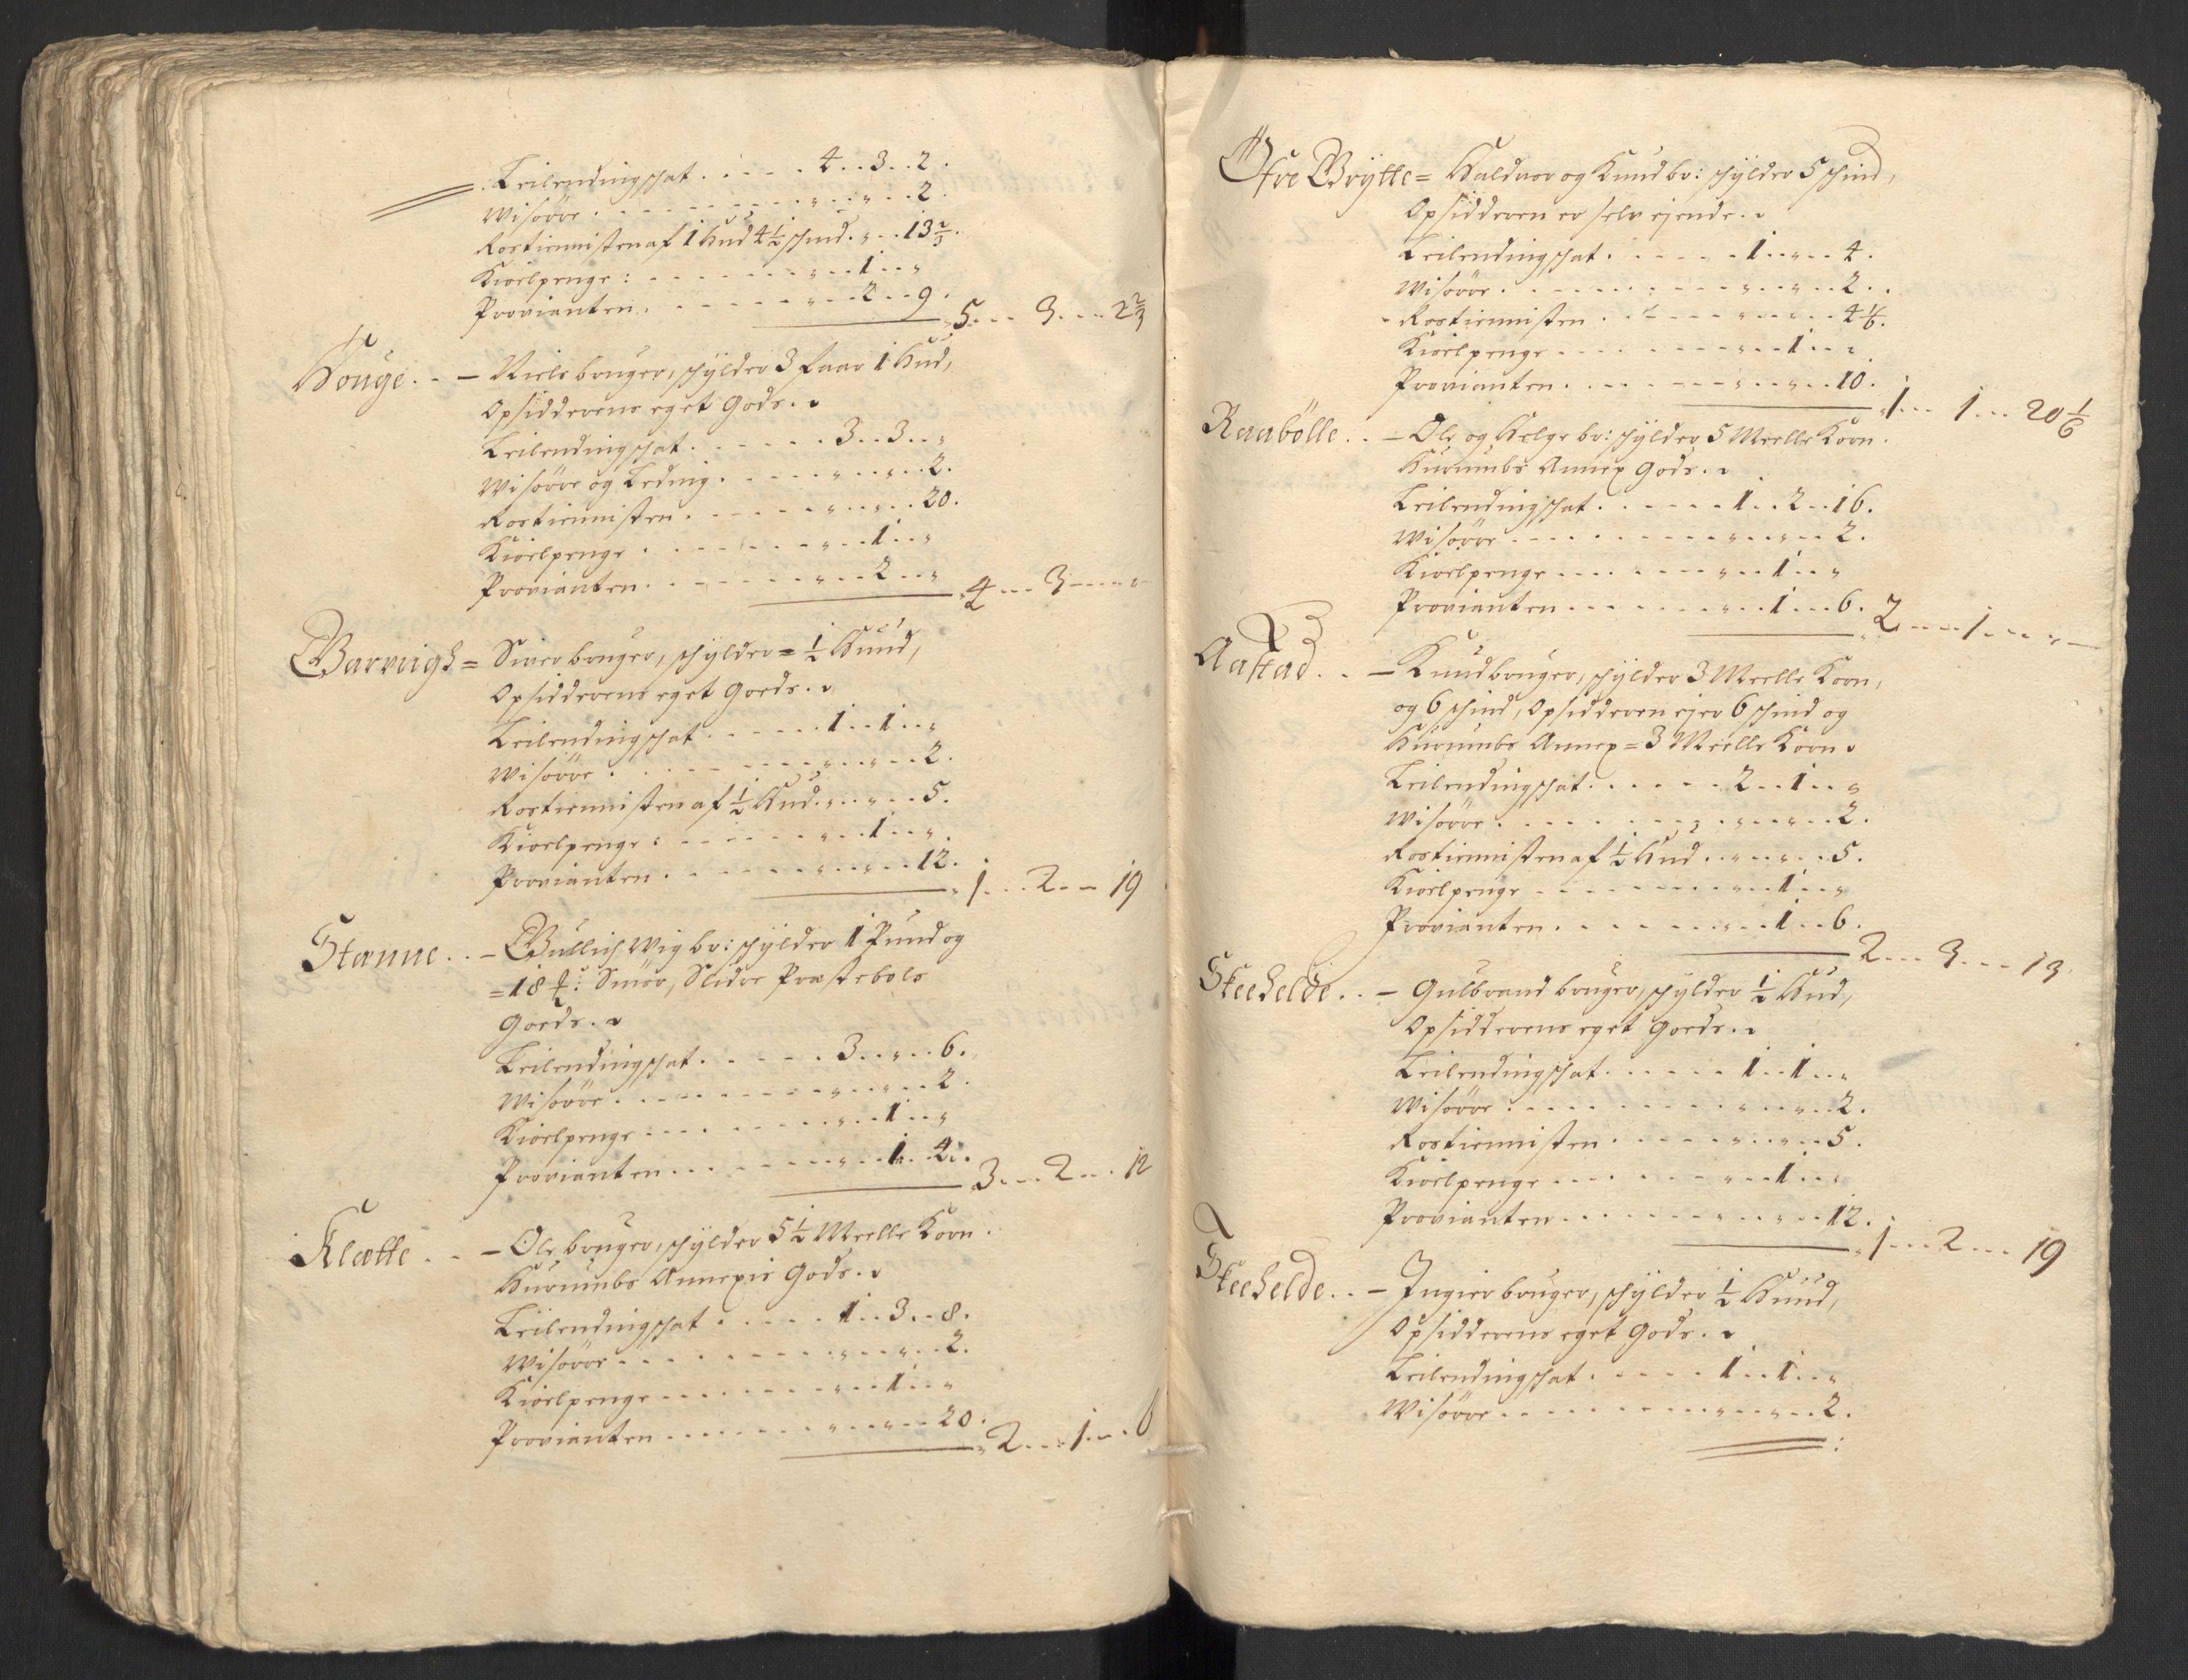 Leilendingschat . . . . . 4 . . 3 . . 2 .
Wisøöre . . . . . . . . „ . . „ . . 2 .
Rostiennisten af 1 Hud 4½ schind . „ . . 13 2/3 .
Kioelpenge : . . . . . . . „ . . 1 . . „
Provianten . . . . . . . „ . . 2 . . 9 .
5 . . . 3 . . . 2 2/3
Houge . . – Niels bruger, schylder 3 faar 1 Hud,
Opsidderens eget Gods . „
Leilendingschat . . . . . . 3 . . 3 . . „
Wisøöre og Leding . . . . . „ . . „ . . 2 .
Rostiennisten . . . . . . „ . . „ . . 20 .
Kioelpenge . . . . . . . „ . . 1 . . „
Provianten . . . . . . . „ . . 2 . . „
4 . . . 3 . . . „
Warvigh = Siver bruger, schylder = ½ Huud,
Opsidderens eget Goeds . „
Leilendingschat . . . . . 1 . . 1 . . „
Wisøöre . . . . . . . . „ . . „ . . 2 .
Rostiennisten af ½ Hud . „ . . „ . . 5 .
Kioelpenge : . . . . . . „ . . 1 . . „ .
Provianten . . . . . . . „ . . „ . . 12 .
1 . . . 2 . . 19
Stænne . . – Gullich Wig br: schylder 1 Pund og
= 18 ℔: Smör, Slidre Præstebols
Goeds . „
Leilendingschat . . . . . 3 . . „ . . 6 .
Wisøöre . . . . . . . . „ . . „ . . 2 .
Kioelpenge . . . . . . . „ . . 1 . . „
Provianten . . . . . . . „ . . 1 . . 4 .
3 . . . 2 . . . 12
Klætte . . – Ole bruger, schylder 5½ Meelle Korn .
Hurumbs Annexis Gods . „
Leilendingschat . . . . . 1 . . 3 . . 8 .
Wisøöre . . . . . . . . „ . . „ . . 2 .
Kioelpenge . . . . . . . „ . . 1 . . „
Provianten . . . . . . . „ . . „ . . 20 .
2 . . . 1 . . . 6
Øfre Brÿtte = Haldvor og Knud br: schÿlder 5 schind,
Opsidderen er selv ejende . „
Leilendingschat . . . . . . 1 . . „ . . 4 .
Wisøöre . . . . . . . . . „ . . „ . . 2 . .
Rostiennisten . . . . . . „ . . „ . . 4 1/6 .
Kioelpenge . . . . . . . . „ . . 1 . . „ .
Provianten . . . . . . . . „ . . „ . . 10 .
1 . . . 1 . . . 20 1/6
Raabölle . . – Ole og Helge br: schylder 5 Meelle Korn .
Hurumbs Annex Gods . „
Leilendingschat . . . . . . 1 . . 2 . . 16 .
Wisøöre . . . . . . . . . „ . . „ . . 2 .
Kioelpenge . . . . . . . . „ . . 1 . . „
Provianten . . . . . . . . „ . . 1 . . . 6 .
2 . . . 1 . . . „
Aastad . . – Knud bruger, schylder 3 Meelle Korn,
og 6 schind, Opsidderen ejer 6 schind og
Hurumbs Annex = 3 Meelle Korn .
Leilendingschat . . . . . . 2 . . 1 . . „
Wisøöre . . . . . . . . „ . . „ . . 2 .
Rostiennisten af ½ Hud . . „ . . „ . . 5 .
Kioelpenge . . . . . . . . „ . . 1 . . „
Provianten . . . . . . . . „ . . 1 . . 6 .
2 . . . 3 . . . 13
Skeehelde . . – Gulbrand bruger, schylder ½ Hud,
Opsidderens eget Goeds . „
Leilendingschat . . . . . . 1 . . 1 . . „
Wisøöre . . . . . . . . . „ . . „ . . 2 .
Rostiennisten . . . . . . „ . . „ . . 5 .
Kioelpenge . . . . . . . . „ . . 1 . . „
Provianten . . . . . . . . „ . . „ . . 12 .
1 . . . 2 . . . 19
Skeehelde . . – Ingier bruger, schylder ½ Huud,
Opsidderens eget Gods . „
Leilendingschat . . . . . 1 . . 1 . . „
Wisøöre . . . . . . . . . „ . . „ . . 2 .